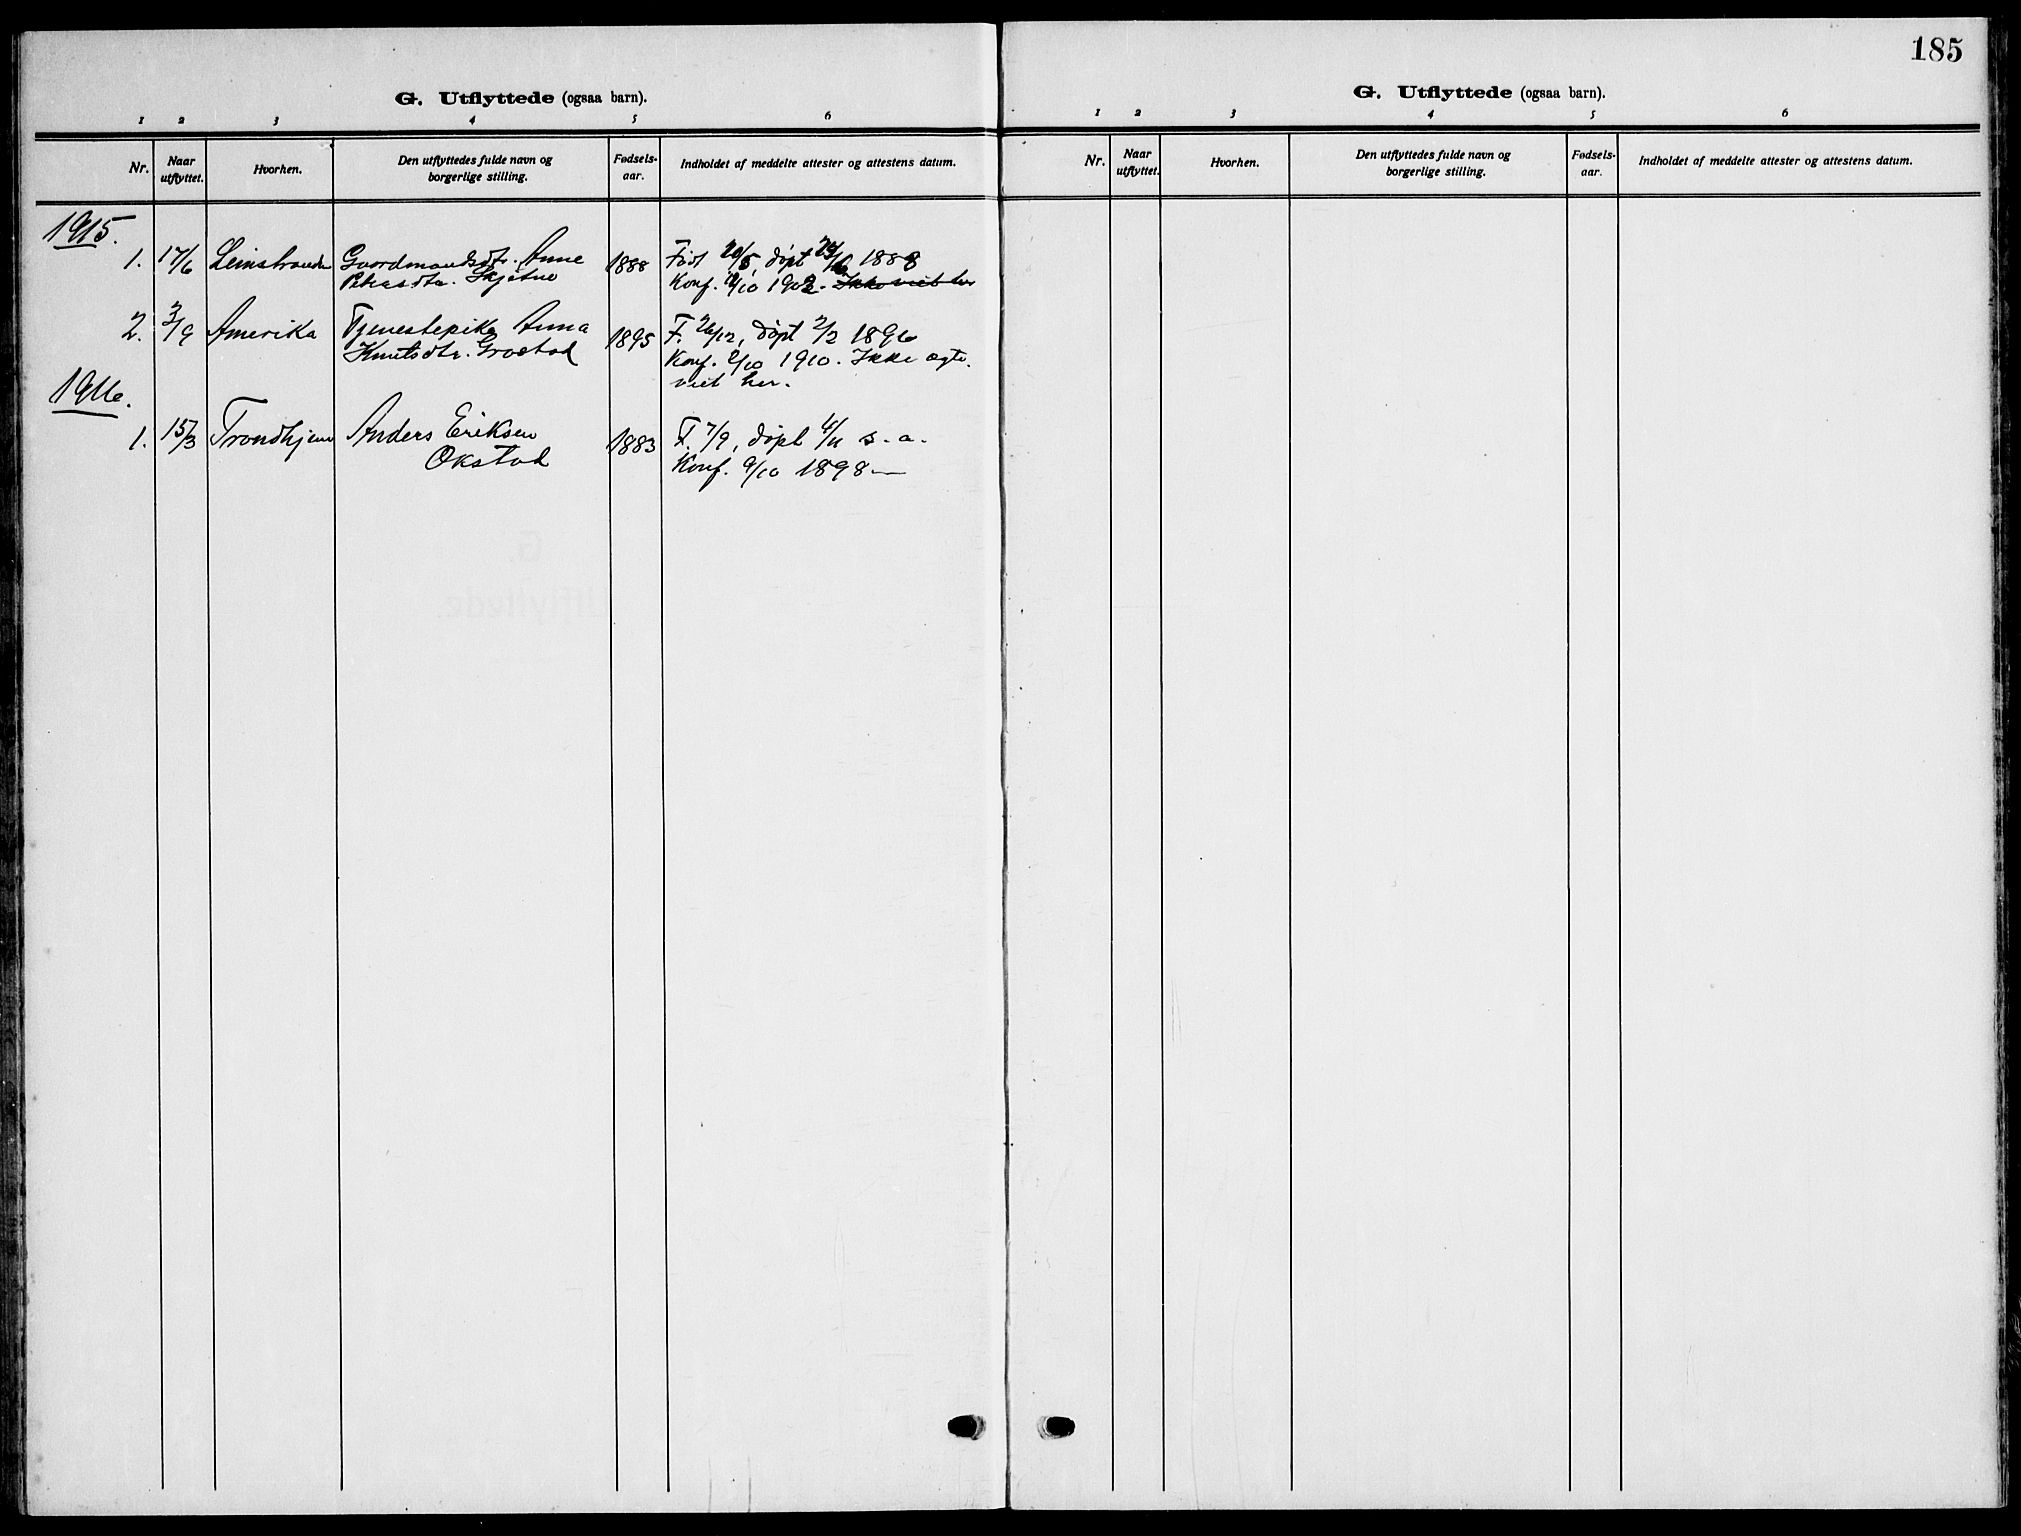 185
G. Utflyttede (ogsaa barn).
1 2 3 4 5 6
Nr. Naar utflyttet. Hvorhen. Den utflyttedes fulde navn og borgerlige stilling. Fødsels-aar. Indholdet af meddelte attester og attestens datum.
1915.
1. 17/6 Leinstranden Gaardmandsdtr. Anne 1888 Født 20/5, døpt 24/6 1888
Petersdtr. Skjetne Konf. /10 1902. Ikke viet her
2. 3/9 Amerika Tjenestepike Anna 1895 F. 26/12, døpt 2/2 1896
Knutsdtr. Grostad Konf. 2/10 1910. Ikke egte
viet her.
1916.
1. 15/3 Trondhjem Anders Eriksen 1883 F. 7/9, døpt 4/11 s. a.
Okstad Konf. 9/10 1898 —
G. Utflyttede (ogsaa barn).
1 2 3 4 5 6
Nr. Naar utflyttet. Hvorhen. Den utflyttedes fulde navn og borgerlige stilling. Fødsels-aar. Indholdet af meddelte attester og attestens datum.